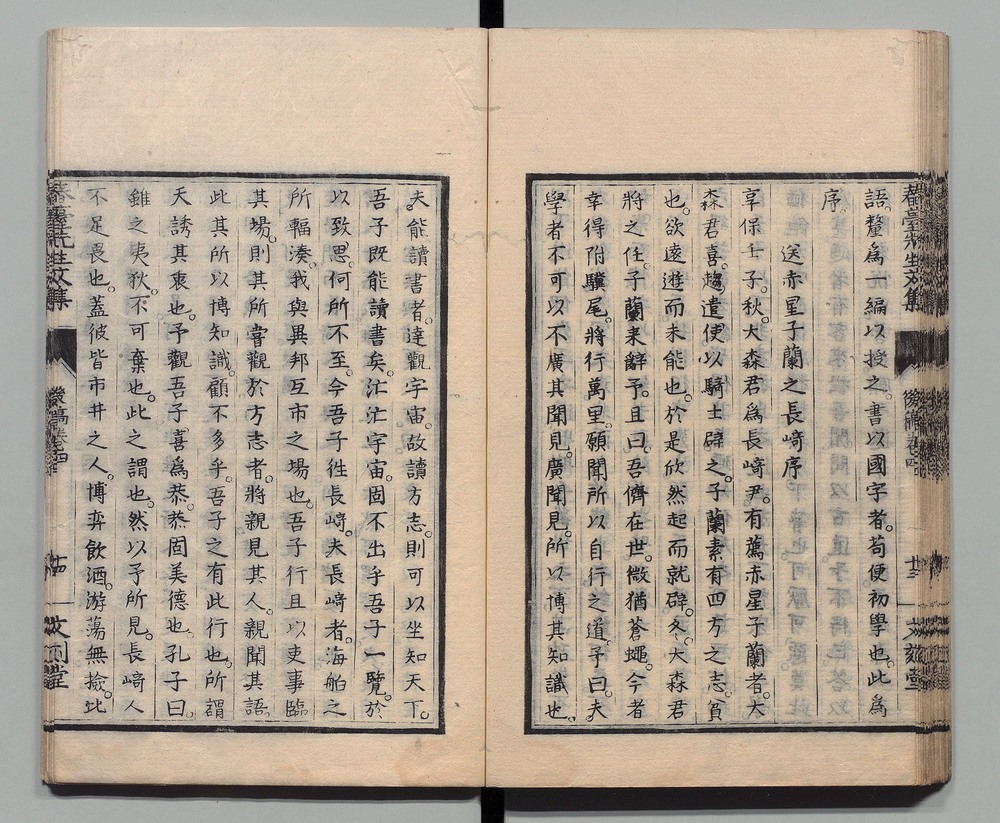 春臺先生文集 後稿卷四 廿三 文刻堂
語。釐爲一編以授之。書以國字者。苟便初學也。此爲
序。
送赤星子蘭之長崎序
享保壬子秋。大森君爲長崎尹。有薦赤星子蘭者。大
森君喜。趨遣使以騎士辟之。子蘭素有四方之志。負
也。欲遠遊而未能也。於是欣然起而就辟。冬。大森君
將之任。子蘭來辭予。且曰。吾儕在世。微猶蒼蠅。今者
幸得附驥尾。將行萬里。願聞所以自行之道。予曰。夫
學者不可以不廣其聞見。廣聞見。所以博其知識也。
夫能讀書者。達觀宇宙。故讀方志。則可以坐知天下。
吾子既能讀書矣。茫茫宇宙。固不出乎吾子一覽。於
以致思。何所不至。今吾子徃長崎。夫長崎者。海舶之
所輻湊。我與異邦互市之場也。吾子行且以吏事臨
其場。則其所嘗觀於方志者。將親見其人。親聞其語。
此其所以博知識。顧不多乎。吾子之有此行也。所謂
天誘其衷也。予觀吾子喜爲恭。恭固美德也。孔子曰。
雖之夷狄。不可棄也。此之謂也。然以予所見。長崎人
不足畏也。蓋彼皆市井之人。博弈飲酒。游蕩無撿。比
春臺先生文集 後稿卷四 廿四 文刻堂